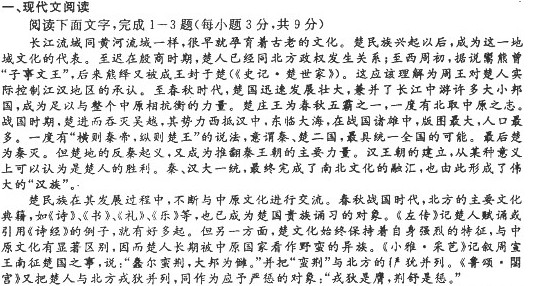 一、现代文阅读
阅读下面文字,完成1-3题(每小题3分,共9分)
长江流域同黄河流域一样,很早就孕育着古老的文化。楚民族兴起以后,成为这一地
域文化的代表。至迟在殷商时期,楚人已经同北方政权发生关系;至西周初,据说鬻熊曾
“子事文王”,后来熊绎又被成王封于楚(《史记·楚世家》)。这应该理解为周王对楚人实
际控制江汉地区的承认。至春秋时代,楚国迅速发展壮大,兼并了长江中游许多大小邦
国,成为足以与整个中原相抗衡的力量。楚庄王为春秋五霸之一,一度有北取中原之志。
战国时期,楚进而吞灭吴越,其势力西抵汉中,东临大海,在战国诸雄中,版图最大,人口最
多。一度有“横则秦帝,纵则楚王”的说法,意谓秦、楚二国,最具统一全国的可能。最后楚
为秦灭。但楚地的反秦起义,又成为推翻秦王朝的主要力量。汉王朝的建立,从某种意义
上可以认为是楚人的胜利。秦、汉大一统,最终完成了南北文化的融汇,也由此形成了伟
大的“汉族”。
楚民族在其发展过程中,不断与中原文化进行交流。春秋战国时代,北方的主要文化
典籍,如《诗》、《书》、《礼》、《乐》等,也已成为楚国贵族诵习的对象。《左传》记楚人赋诵或
引用《诗经》的例子,就有好多起。但另一方面,楚文化始终保持着自身强烈的特征,与中
原文化有显著区别,因而楚人长期被中原国家看作野蛮的异族。《小雅·采艺》记叙周宣
王南征楚国之事,说:“蠢尔蛮荆,大邦为雠。”并把“蛮荆”与北方的 狁并列。《鲁颂·閟
宫》又把楚人与北方戎狄并列,同作为应予严惩的对象:“戎狄是膺,荆舒是惩。”